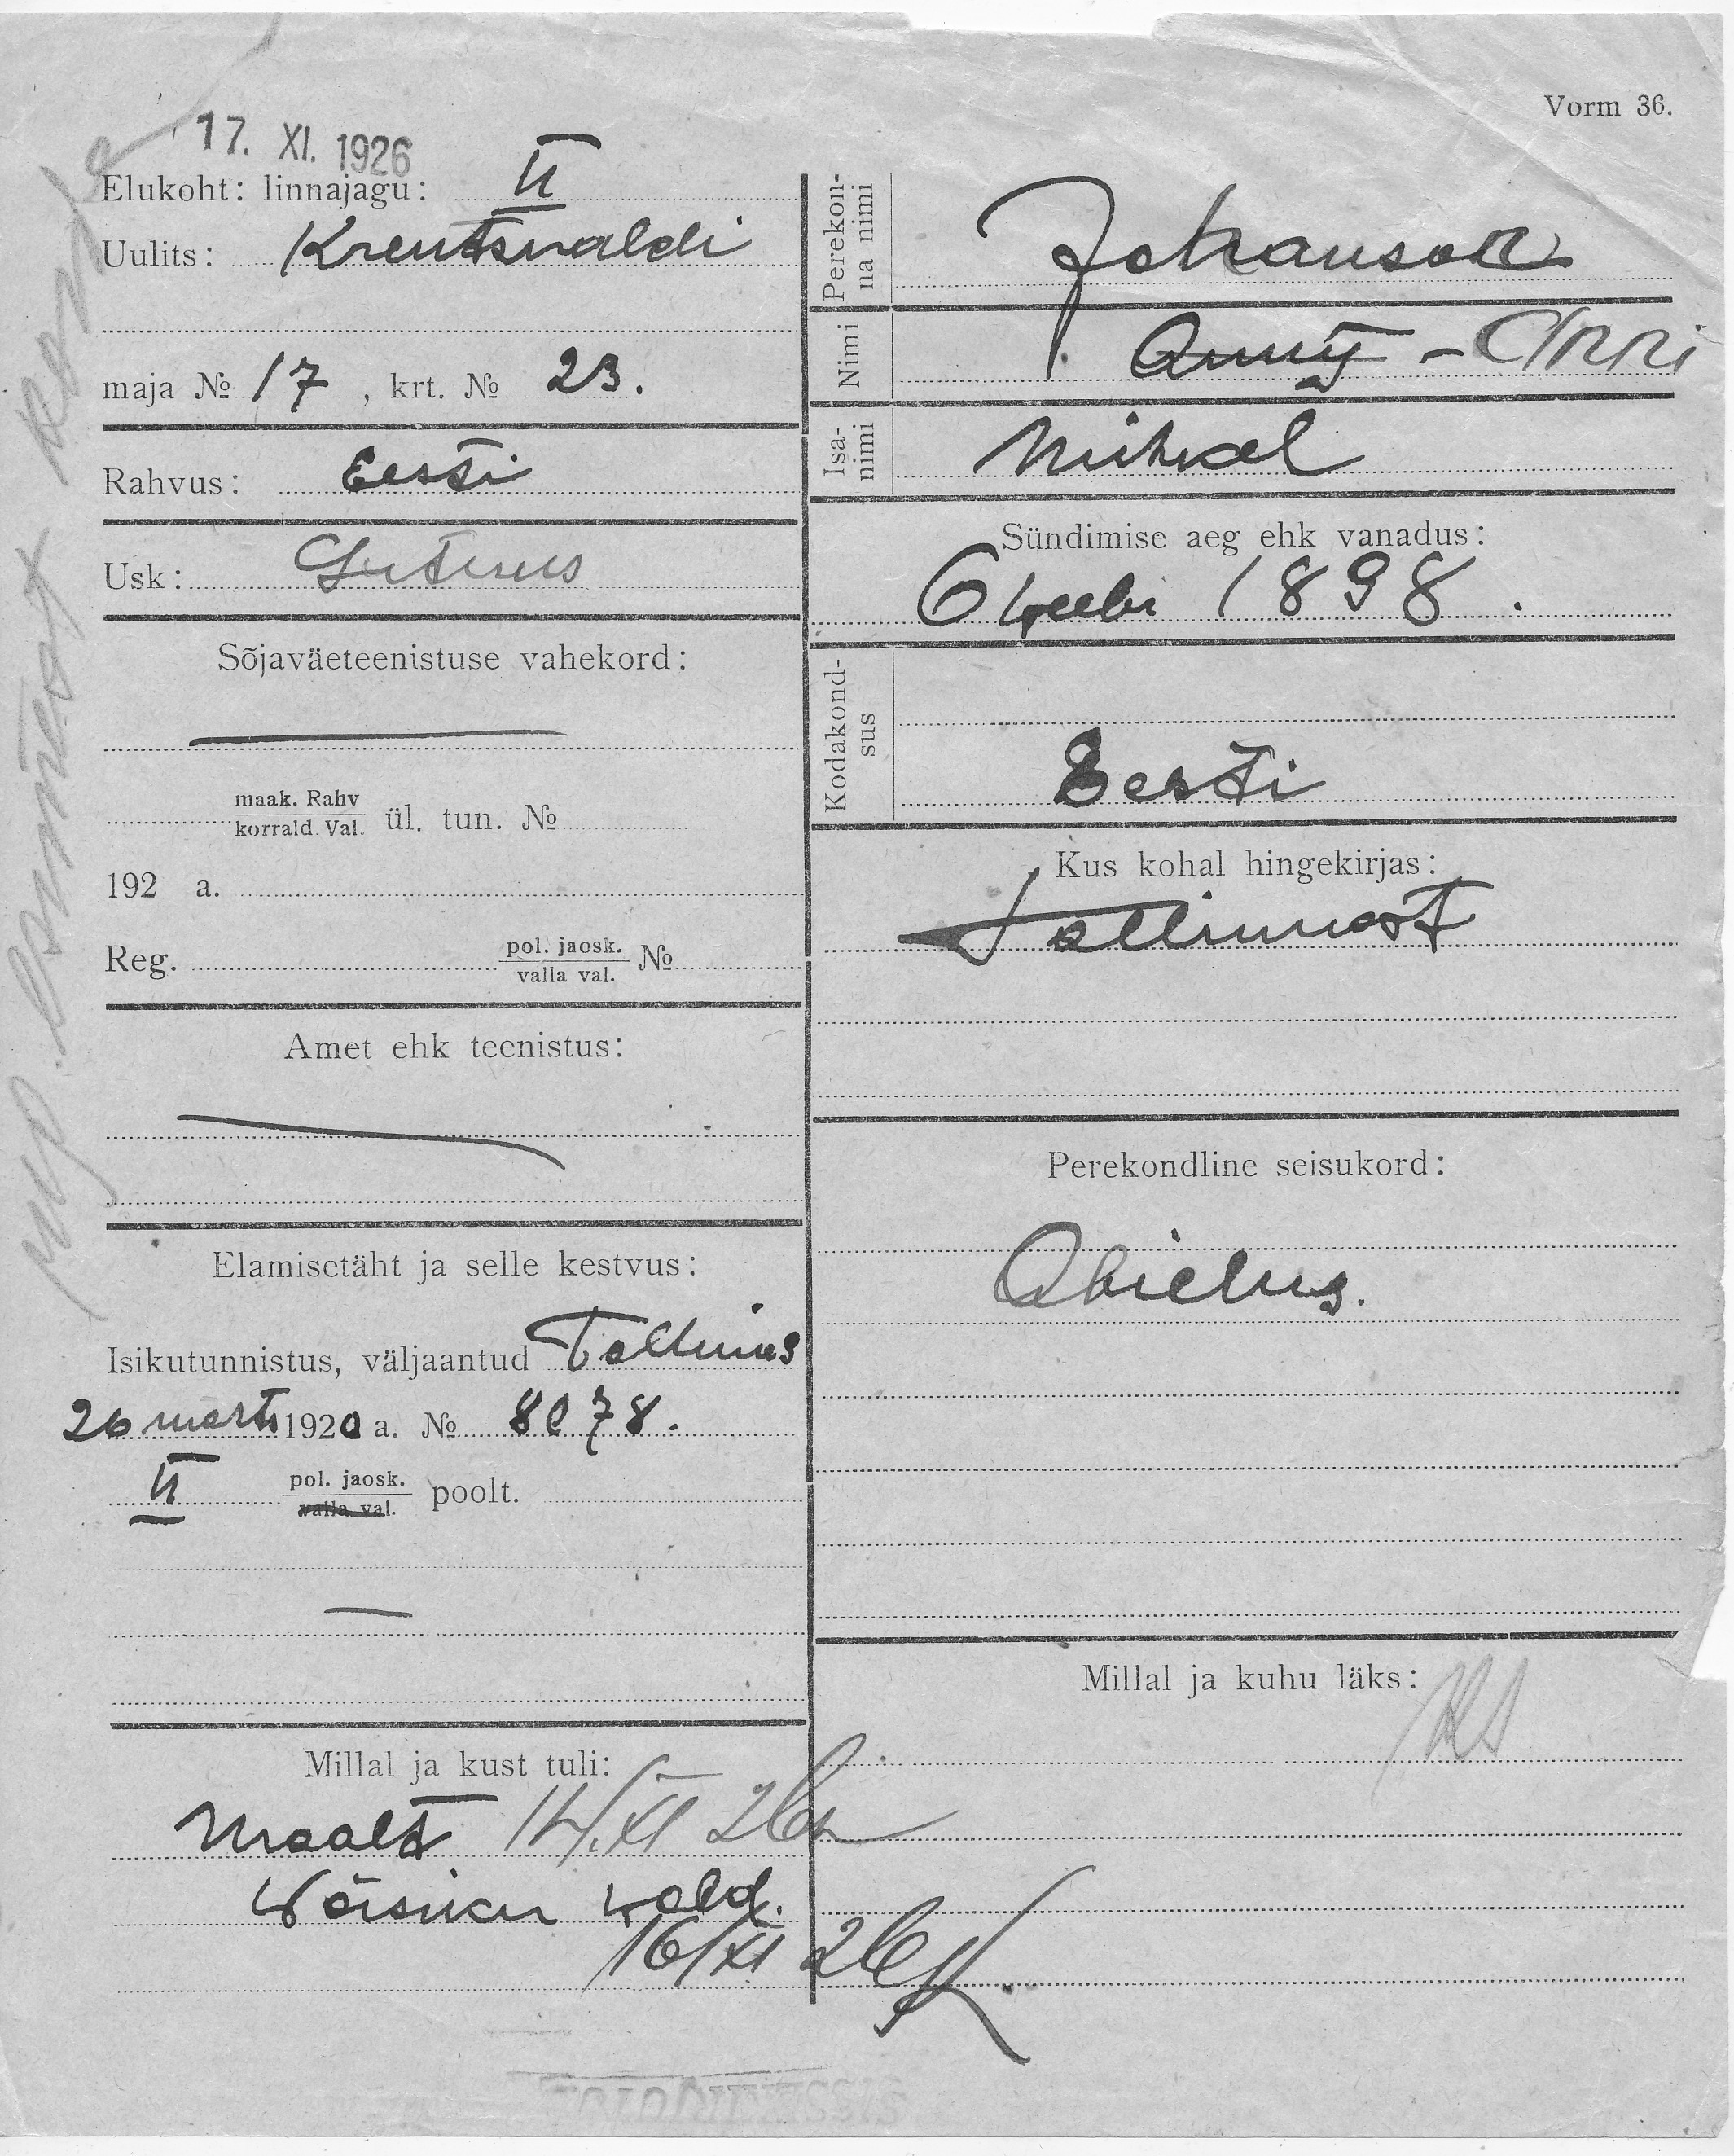 Vorm 36.
17. XI. 1926
Elukoht: linnajagu: II
Uulits: Kreutswaldi
maja № 17, krt. № 23.
Rahvus: Eesti
Usk: Luterus
Sõjaväeteenistuse vahekord:
maak. Rahv
korrald. Val. ül. tun. №
192 a.
Reg. pol. jaosk.
valla val. №
Amet ehk teenistus:
Elamisetäht ja selle kestvus:
Isikutunnistus, väljaantud Tallinas
26 marts 1920 a. № 8078.
II pol. jaosk.
valla val. poolt.
Millal ja kust tuli:
Maalt 14/XI 26
Wõisiku wald.
16/XI 26
Perekon-
na nimi
Johanson
Nimi Anny - Anni
Isa-
nimi
Mihkel
Sündimise aeg ehk vanadus:
6 1898.
Kodakond-
sus
Eesti
Kus kohal hingekirjas:
Tallinnast
Perekondline seisukord:
Abielus.
Millal ja kuhu läks: